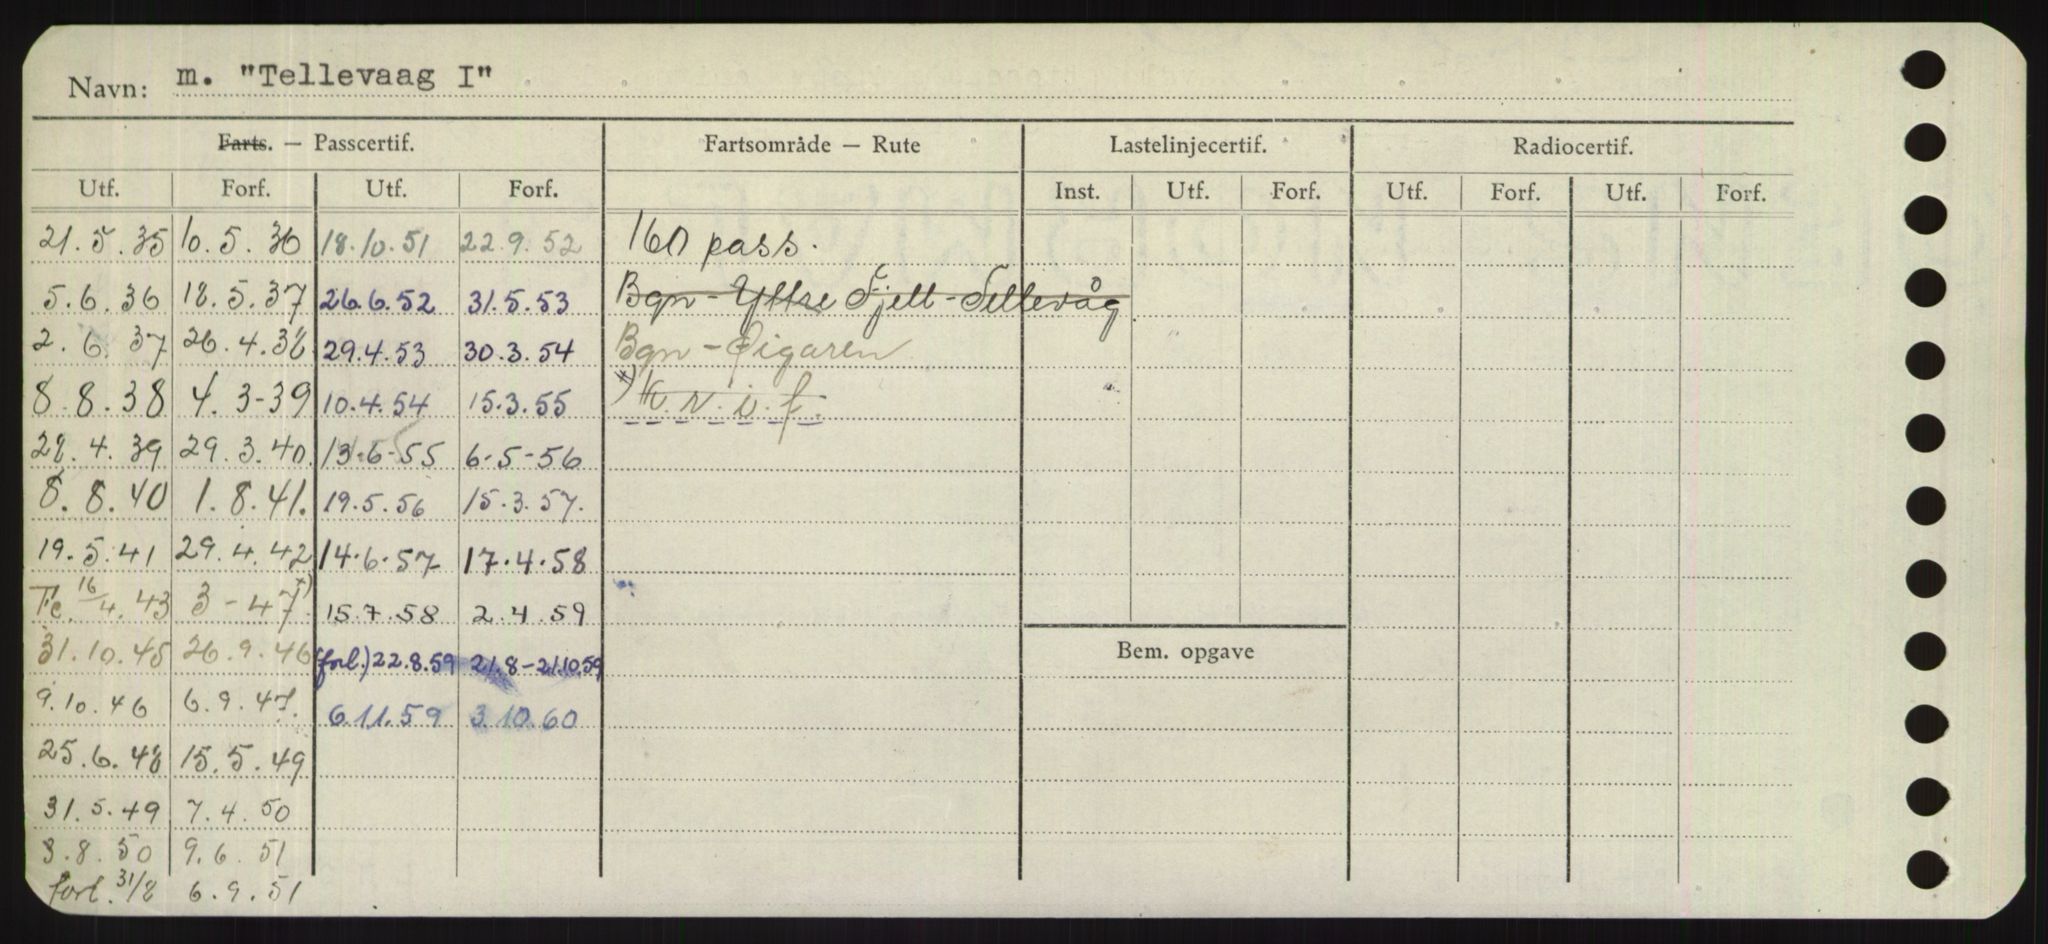 Navn: m. "Tellevaag I"
Farts. — Passcertif. Fartsområde — Rute Lastelinjecertif. Radiocertif.
Utf. Forf. Utf. Forf. Inst. Utf. Forf. Utf. Forf. Utf. Forf.
21.5.35 10.5.36 18.10.51 22.9.52 160 pass.
5.6.36 18.5.37 26.6.52 31.5.53 Bgn - Yttre Fjell - Tellevåg
2.6.37 26.4.38 29.4.53 30.3.54 Bgn -
8.8.38 4.3-39 10.4.54 15.3.55
28.4.39 29.3.40. 13.6-55 6-5-56
8.8.40 1.8.41. 19.5.56 15.3.57.
19.5.41 29.4.42 14.6.57 17.4.58
16/4.43 3-47 15.7.58 2.4.59
31.10.45 26.9.46 (forl.) 22.8.59 21.8-21.10.59
Bem. opgave
9.10.46 6.9.47. 6.11.59 3.10.60
25.6.48 15.5.49
31.5.49 7.4.50
3.8.50 9.6.51
forl. 31/8 6.9.51